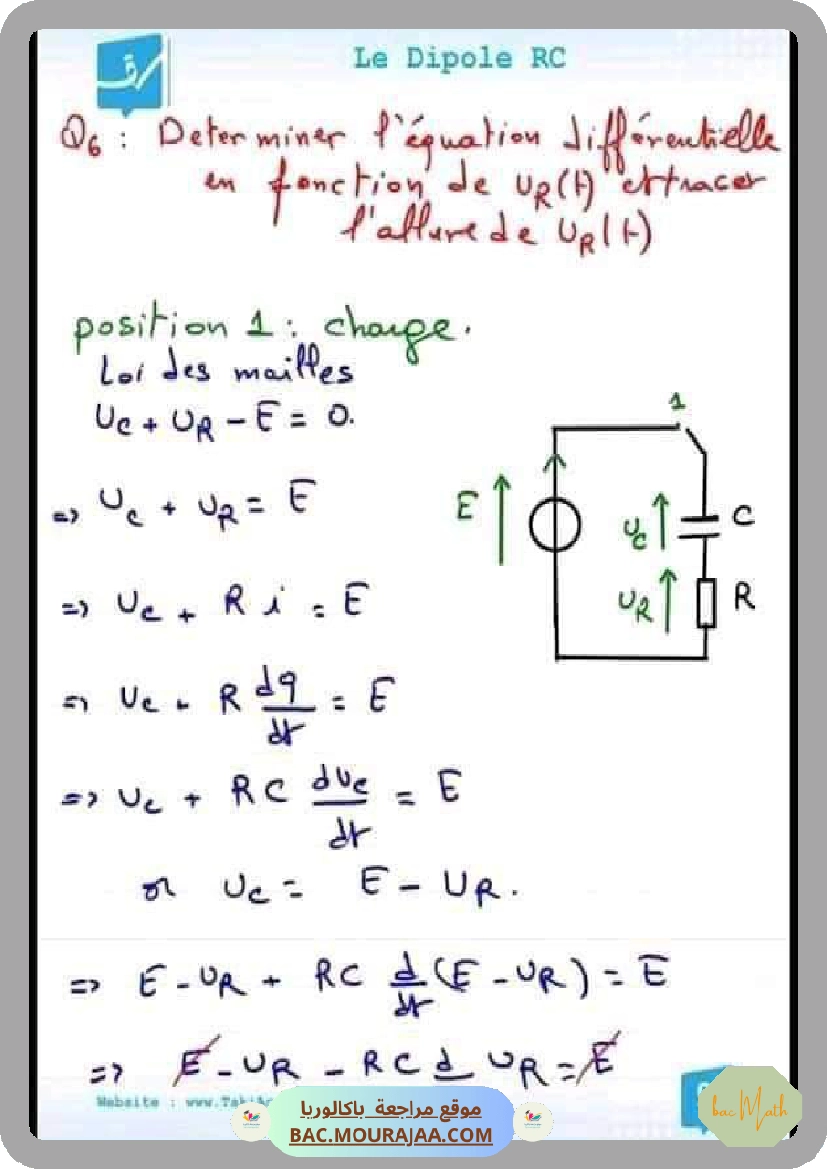 Le Dipole RC
Q6 : Determiner l'équation différentielle
en fonction de UR(t) et tracer
l'allure de UR(t)
position 1 : charge.
Loi des mailles
Uc + UR - E = 0.
=> Uc + UR = E
=> Uc + R i = E
=> Uc + R dq/dt = E
=> Uc + RC dUc/dt = E
or Uc = E - UR.
=> E - UR + RC d/dt (E - UR) = E
=> E - UR - RC d UR = E
1
E
Uc
C
UR
R
موقع مراجعة باكالوريا
BAC.MOURAJAA.COM
bac Math